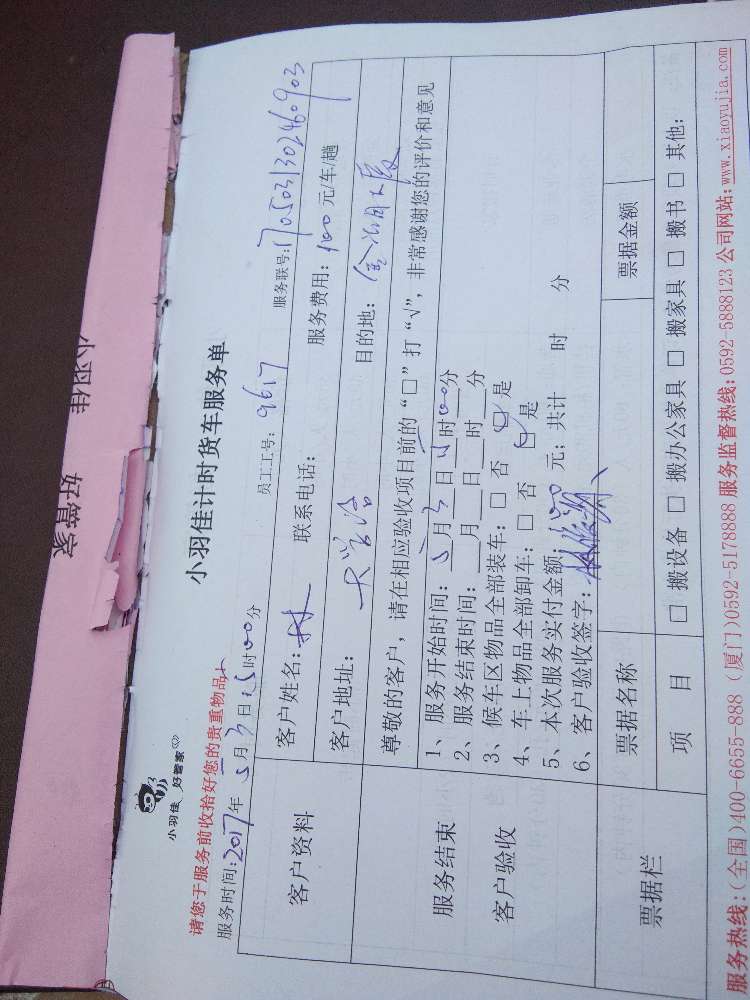 小羽佳 好管家
小羽佳 好管家
小羽佳计时货车服务单
请您于服务前收拾好您的贵重物品
服务时间:2017年5月3日15时00分 员工工号:9617 服务联号:1705031302460903
客户资料
客户姓名:林 联系电话: 服务费用:100元/车/趟
客户地址: 大学洽 目的地:
服务结束
客户验收
尊敬的客户,请在相应验收项目前的“□”打“√”,非常感谢您的评价和意见
1、服务开始时间:5月3日15时00分
2、服务结束时间: 月 日 时 分
3、候车区物品全部装车:□ 否 ☑ 是
4、车上物品全部卸车:□ 否 ☑ 是
5、本次服务实付金额:100元;共计 时 分
6、客户验收签字:
票据栏
票据名称 票据金额
项 目 □ 搬设备 □ 搬办公家具 □ 搬家具 □ 搬书 □ 其他:
服务热线:(全国)400-6655-888 (厦门)0592-5178888 服务监督热线:0592-5888123 公司网站:www.xiaoyujia.com